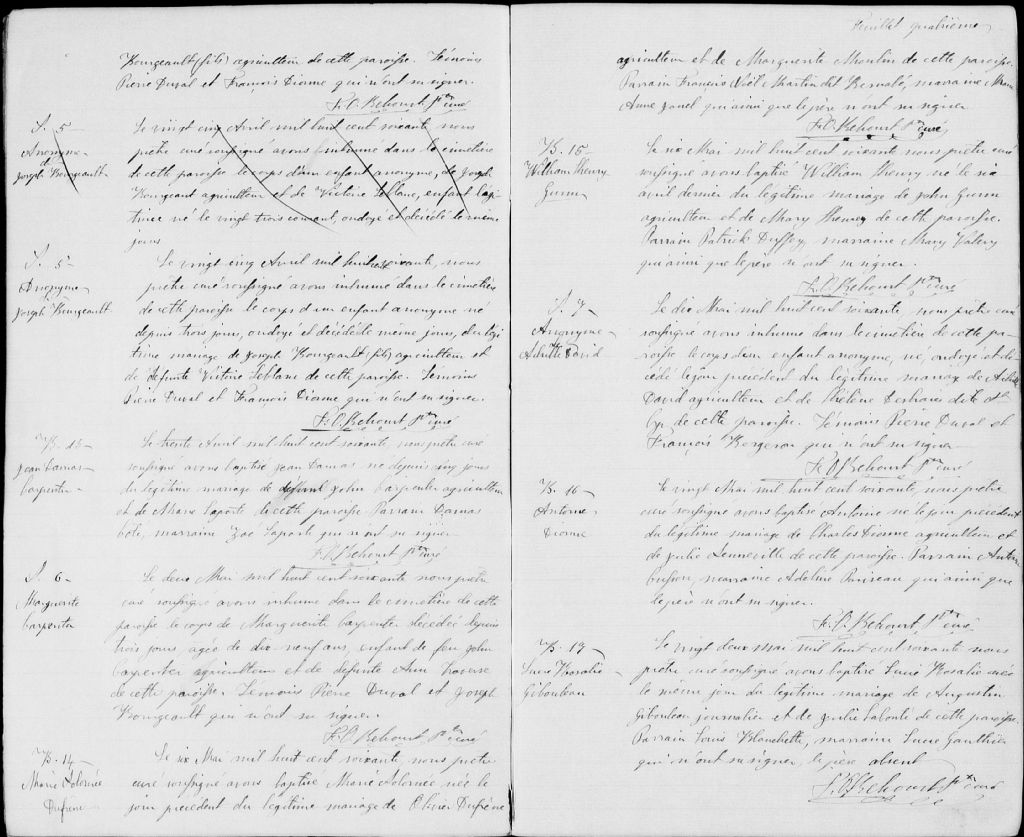 Bourgeault (fils) agriculteur de cette paroisse. Témoins
Pierre Duval et François Dionne qui n'ont su signer.
F. O. Rehourt Ptre curé
S. 5
Anonyme
de
Joseph Bourgeault
Le vingt cinq Avril mil huit cent soixante, nous
prêtre curé soussigné avons inhumé dans le cimetière
de cette paroisse le corps d'un enfant anonyme, de Joseph
Bourgeault agriculteur et de Victoire Leblanc, enfant légi-
time né le vingt trois courant, ondoyé et décédé le même
jour
S. 5
Anonyme
Joseph Bourgeault
Le vingt cinq Avril mil huit cent soixante, nous
prêtre curé soussigné avons inhumé dans le cimetière
de cette paroisse le corps d'un enfant anonyme né
depuis trois jours, ondoyé et décédé le même jour, du légi-
time mariage de Joseph Bourgeault (fils) agriculteur et
de defunte Victoire Leblanc de cette paroisse. Témoins
Pierre Duval et François Dionne qui n'ont su signer.
F. O. Rehourt Ptre curé
B. 13
Jean Damas
Carpenter
Le trente Avril mil huit cent soixante, nous prêtre curé
soussigné avons baptisé Jean Damas né depuis cinq jours
du légitime mariage de defunt John Carpenter agriculteur
et de Marie Laporte de cette paroisse. Parrain Damas
Coté, marraine Zoé Laporte qui n'ont su signer
F. O. Rehourt Ptre curé
S. 6
Marguerite
Carpenter
Le deux Mai mil huit cent soixante nous prêtre
curé soussigné avons inhumé dans le cimetière de cette
paroisse le corps de Marguerite Carpenter décédée depuis
trois jours agée de dix-neuf ans, enfant de feu John
Carpenter agriculteur et de defunte Ann
de cette paroisse. Témoins Pierre Duval et Joseph
Bourgeault qui n'ont su signer.
F. O. Rehourt Ptre curé
B. 14
Marie Dolornée
Dufresne
Le six Mai mil huit cent soixante, nous prêtre
curé soussigné avons baptisé Marie Dolornée née le
jour precedent du légitime mariage de Olivier Dufrène
Feuillet quatrième
agriculteur et de Marguerite Moulin de cette paroisse.
Parrain François Noël Martin dit Barnabé, marraine Marie
Anne qui ainsi que le père n'ont su signer
F. O. Rehourt Ptre curé
B. 15
William Henry
Gunn
Le six Mai mil huit cent soixante, nous prêtre curé
soussigné avons baptisé William Henry né le six
avril dernier du légitime mariage de John Gunn
agriculteur et de Mary Henney de cette paroisse.
Parrain Patrick Duffey, marraine Mary Valery
qui ainsi que le père n'ont su signer.
F. O. Rehourt Ptre curé
S. 7
Anonyme
Achille David
Le dix Mai mil huit cent soixante, nous prêtre curé
soussigné avons inhumé dans le cimetière de cette pa-
roisse le corps d'un enfant anonyme, né, ondoyé et dé-
cédé le jour précédent du légitime mariage de Achille
David agriculteur et de Hélène dite St
Cyr de cette paroisse. Témoins Pierre Duval et
François Bergeron qui n'ont su signer
F. O. Rehourt Ptre curé
B. 16
Antoine
Dionne
Le vingt Mai mil huit cent soixante, nous prêtre
curé soussigné avons baptisé Antoine né le jour précédent
du légitime mariage de Charles Dionne agriculteur et
de Julie Lenneville de cette paroisse. Parrain Antoine
Buisson, marraine Adeline Primeau qui ainsi que
le père n'ont su signer.
F. O. Rehourt Ptre curé
B. 17
Lucie Rosalie
Gibouleau
Le vingt deux Mai mil huit cent soixante nous
prêtre curé soussigné avons baptisé Lucie Rosalie née
le même jour du légitime mariage de Augustin
Gibouleau journalier et de Julie Labonté de cette paroisse.
Parrain Louis Blanchette, marraine Lucie Gauthier
qui n'ont su signer, le père absent
F. O. Rehourt Ptre curé